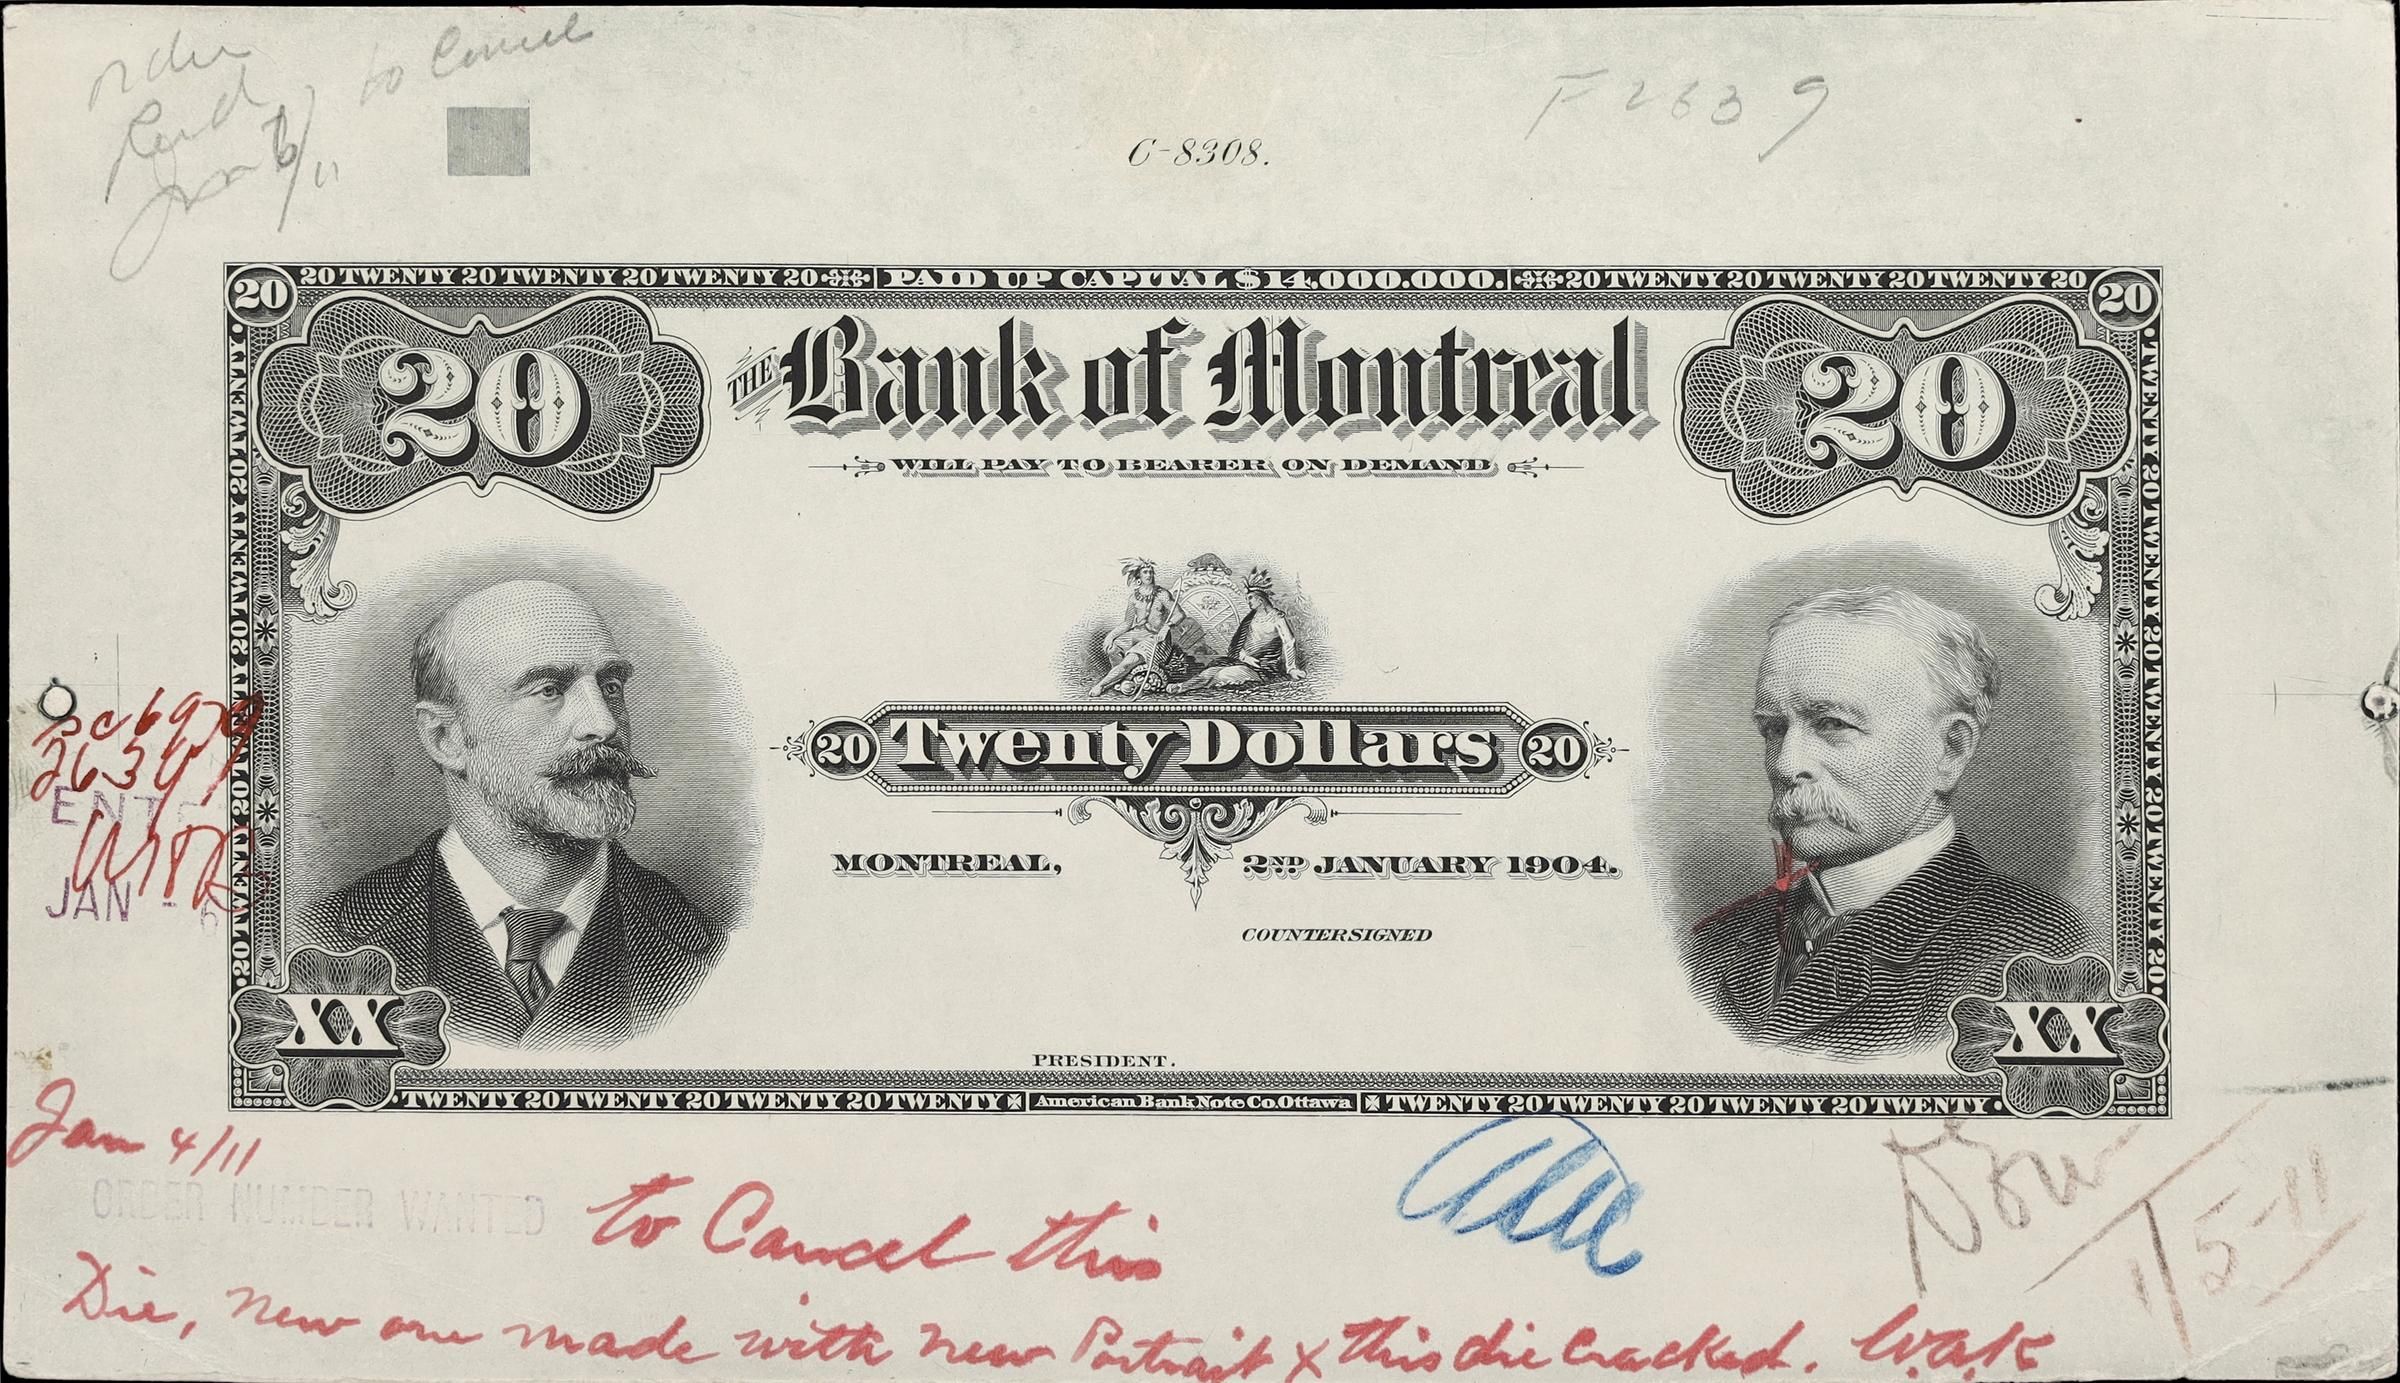 order to Cancel
Jan 6/11
F 2639
C-8308.
20 TWENTY 20 TWENTY 20 TWENTY 20 PAID UP CAPITAL $14,000,000. 20 TWENTY 20 TWENTY 20 TWENTY 20
20 20
20 THE Bank of Montreal 20
WILL PAY TO BEARER ON DEMAND
20 Twenty Dollars 20
MONTREAL, 2ND JANUARY 1904.
COUNTERSIGNED
JAN - 6
XX XX
PRESIDENT.
TWENTY 20 TWENTY 20 TWENTY 20 TWENTY American Bank Note Co. Ottawa TWENTY 20 TWENTY 20 TWENTY 20 TWENTY
20 TWENTY 20 TWENTY 20 TWENTY 20 TWENTY 20 TWENTY
TWENTY 20 TWENTY 20 TWENTY 20 TWENTY 20 TWENTY 20
Jan 4/11
ORDER NUMBER WANTED
to Cancel this
1/5-11
Die, new one made with new Portrait & this die cracked. W.A.K